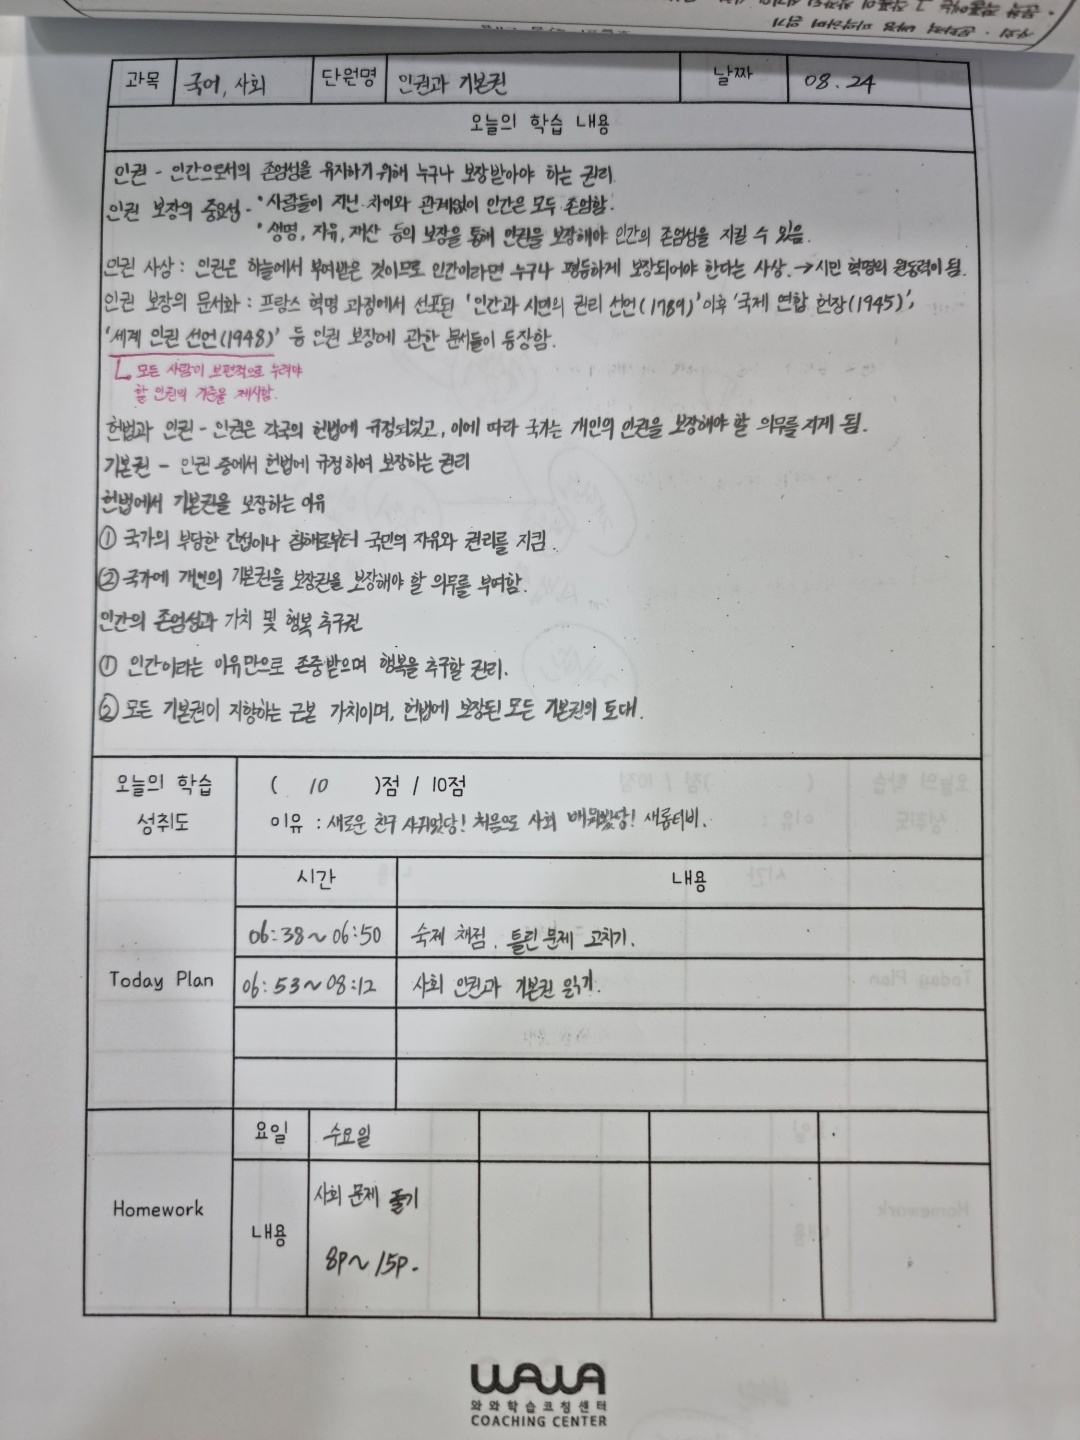 과목 국어, 사회 단원명 인권과 기본권 날짜 08. 24
오늘의 학습 내용
인권 - 인간으로서의 존엄성을 유지하기 위해 누구나 보장받아야 하는 권리
인권 보장의 중요성 - • 사람들이 지닌 차이와 관계없이 인간은 모두 존엄함.
• 생명, 자유, 재산 등의 보장을 통해 인권을 보장해야 인간의 존엄성을 지킬 수 있음.
인권 사상 : 인권은 하늘에서 부여받은 것이므로 인간이라면 누구나 평등하게 보장되어야 한다는 사상. → 시민 혁명의 원동력이 됨.
인권 보장의 문서화 : 프랑스 혁명 과정에서 선포된 '인간과 시민의 권리 선언(1789)' 이후 '국제 연합 헌장(1945)',
'세계 인권 선언(1948)' 등 인권 보장에 관한 문서들이 등장함.
ㄴ 모든 사람이 보편적으로 누려야
할 인권의 기준을 제시함.
헌법과 인권 - 인권은 각국의 헌법에 규정되었고, 이에 따라 국가는 개인의 인권을 보장해야 할 의무를 지게 됨.
기본권 - 인권 중에서 헌법에 규정하여 보장하는 권리
헌법에서 기본권을 보장하는 이유
① 국가의 부당한 간섭이나 침해로부터 국민의 자유와 권리를 지킴.
② 국가에 개인의 기본권을 보장권을 보장해야 할 의무를 부여함.
인간의 존엄성과 가치 및 행복 추구권
① 인간이라는 이유만으로 존중받으며 행복을 추구할 권리.
② 모든 기본권이 지향하는 근본 가치이며, 헌법에 보장된 모든 기본권의 토대.
오늘의 학습 성취도
( 10 )점 / 10점
이유 : 새로운 친구 사귀었당! 처음으로 사회 배워봤당! 새롬티비.
시간 내용
Today Plan
06:38~06:50 숙제 채점, 틀린 문제 고치기.
06:53~08:12 사회 인권과 기본권 읽기.
Homework
요일 수요일
내용 사회 문제 풀기
8p~15p.
WAWA
와와학습코칭센터
COACHING CENTER